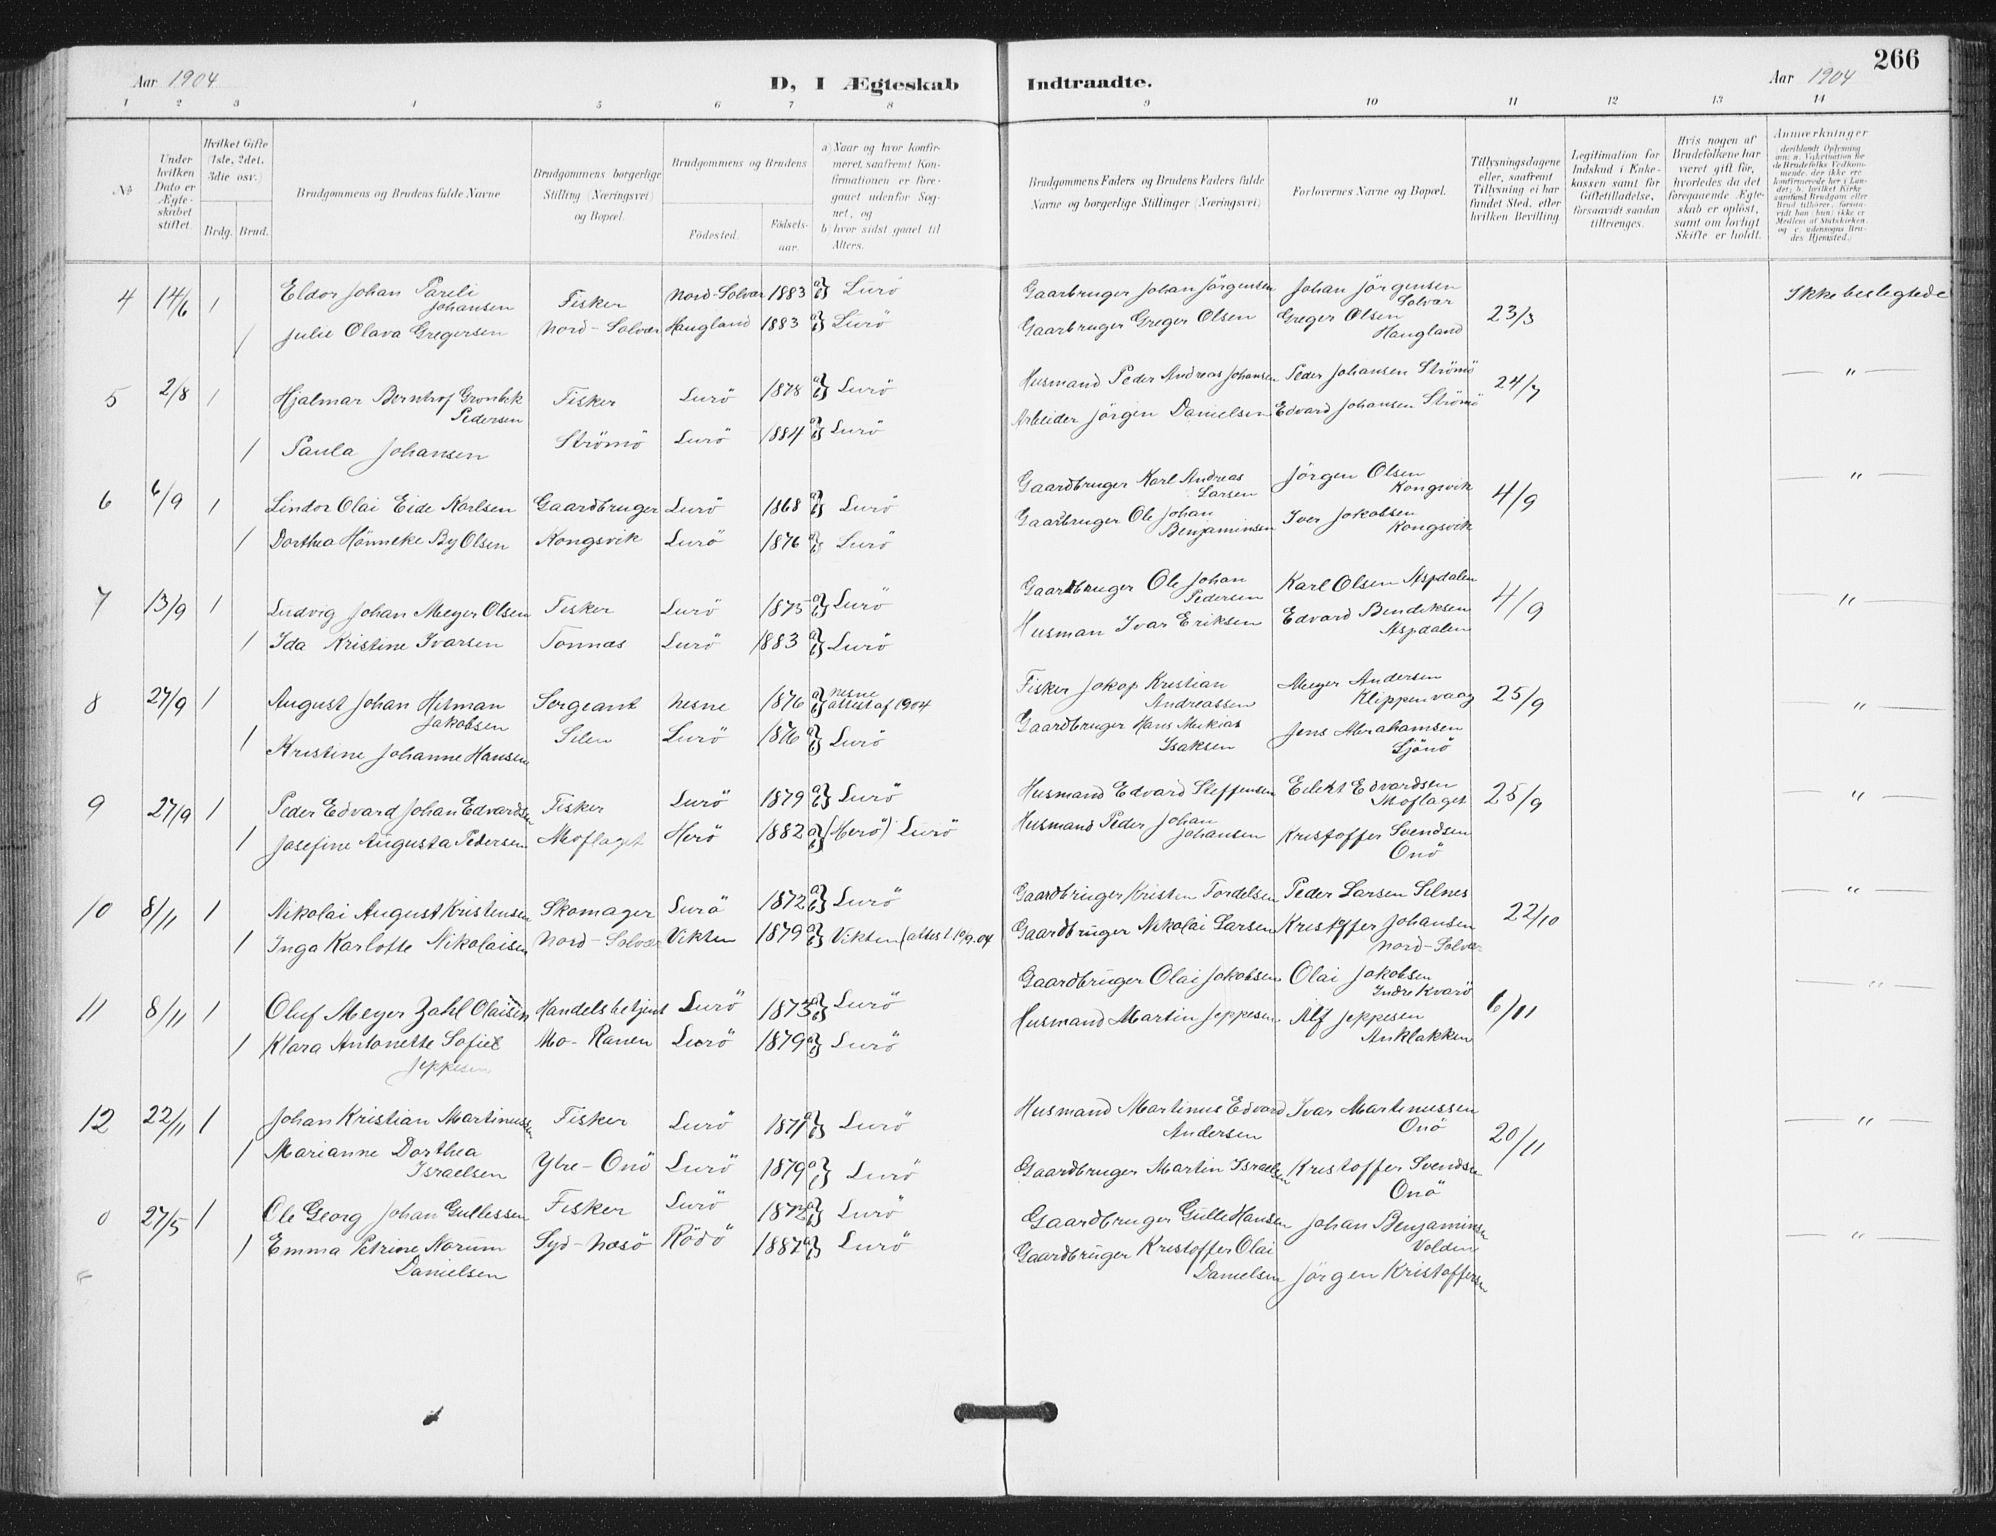 Aar 1904
D, I Ægteskab
Indtraadte.
Aar 1904
266
1 2 3 4 5 6 7 8 9 10 11 12 13 14
№
Under hvilken Dato er Ægteskabet stiftet.
Hvilket Gifte (1ste, 2det, 3die osv.)
Brdg. Brud.
Brudgommens og Brudens fulde Navne
Brudgommens borgerlige Stilling (Næringsvei) og Bopæl.
Brudgommens og Brudens
Fødested.
Fødselsaar.
a) Naar og hvor konfirmeret, saafremt Konfirmationen er foregaaet udenfor Sognet, og
b) hvor sidst gaaet til Alters.
Brudgommens Faders og Brudens Faders fulde Navne og borgerlige Stillinger (Næringsvei)
Forlovernes Navne og Bopæl.
Tillysningsdagene eller, saafremt Tillysning ei har fundet Sted, efter hvilken Bevilling
Legitimation for Indskud i Enkekassen samt for Giftetilladelse, forsaavidt saadan tiltrænges.
Hvis nogen af Brudefolkene har været gift før, hvorledes da det foregaaende Ægteskab er opløst, samt om lovligt Skifte er holdt.
Anmerkninger
4 14/6 1 Eldor Johan Pareli Johansen Fisker Nord-Solvær 1883 a) b) Lurö Gaarbruger Johan Jörgensen Johan Jörgensen Solvær 23/3 Ikke beslegtede
1 Julie Olava Gregersen Nord-Solvær Haugland 1883 a) b) Lurö Gaarbruger Greger Olsen Greger Olsen Haugland
5 2/8 1 Hjalmar Bernhof Gronbek Pedersen Fisker Lurö 1878 a) b) Lurö Husmand Peder Andreas Johansen Peder Johansen Strömö 24/7 — " —
1 Paula Johansen Strömö Lurö 1884 a) b) Lurö Arbeider Jörgen Danielsen Edvard Johansen Strömö
6 6/9 1 Lindor Olai Eide Karlsen Gaardbruger Lurö 1868 a) b) Lurö Gaardbruger Karl Andreas Larsen Jörgen Olsen Kongsvik 4/9 — " —
1 Dorthea Hönneke By Olsen Kongsvik Lurö 1876 a) b) Lurö Gaarbruger Ole Johan Benjaminsen Iver Jakobsen Kongsvik
7 13/9 1 Ludvig Johan Meyer Olsen Fisker Lurö 1875 a) b) Lurö Gaarbruger Ole Johan Pedersen Karl Olsen Aspdalen 4/9 — " —
1 Ida Kristine Ivarsen Tonnes Lurö 1883 a) b) Lurö Husman Ivar Eriksen Edvard Bendiksen Aspdalen
8 27/9 1 August Johan Hitman Jakobsen Sergeant Nesne 1876 a) b) Nesne attest af 1904 Fisker Jakop Kristian Andreassen Meyer Andersen Klippenvaag 25/9 — " —
1 Kristine Johanne Hansen Silen Lurö 1876 a) b) Lurö Gaardbruger Hans Mekias Isaksen Jens Abrahamsen Sjönö
9 27/9 1 Peder Edvard Johan Edvardsen Fisker Lurö 1879 a) b) Lurö Husmand Edvard Steffensen Eilekt Edvardsen Moflaget 25/9 — " —
1 Josefine Augusta Pedersen Moflaget Herö 1882 a) b) (Herö) Lurö Husmand Peder Johan Johansen Kristoffer Svendsen Onö
10 8/11 1 Nikolai August Kristensen Skomager Lurö 1872 a) b) Lurö Gaardbruger Kristen Tordelsen Peder Larsen Selnes 22/10 — " —
1 Inga Karlotte Nikolaisen Nord-Solvær Vikten 1879 a) b) Vikten (attest 10/9.04 Gaardbruger Nikolai Larsen Kristoffer Johansen Nord-Solvær
11 8/11 1 Oluf Meyer Zahl Olaisen Handelsbetjent Lurö 1873 a) b) Lurö Gaardbruger Olai Jakobsen Olai Jakobsen Indre Kvarö 6/11 — " —
1 Klara Antonette Sofie Jeppesen Mo-Ranen Lurö 1879 a) b) Lurö Husmand Martin Jeppesen Alf Jeppesen Anklakken
12 22/11 1 Johan Kristian Martinussen Fisker Lurö 1871 a) b) Lurö Husmand Martinus Edvard Andersen Ivar Martinussen Onö 20/11 — " —
1 Marianne Dorthea Israelsen Ytre-Onö Lurö 1879 a) b) Lurö Gaardbruger Martin Israelsen Kristoffer Svendsen Onö
0 27/5 1 Ole Georg Johan Gullessen Fisker Lurö 1872 a) b) Lurö Gaardbruger Gulle Hansen Johan Benjaminsen Volden — " —
1 Emma Petrine Norum Danielsen Syd-Nesö Rödö 1887 a) b) Lurö Gaardbruger Kristoffer Olai Danielsen Jörgen Kristoffersen